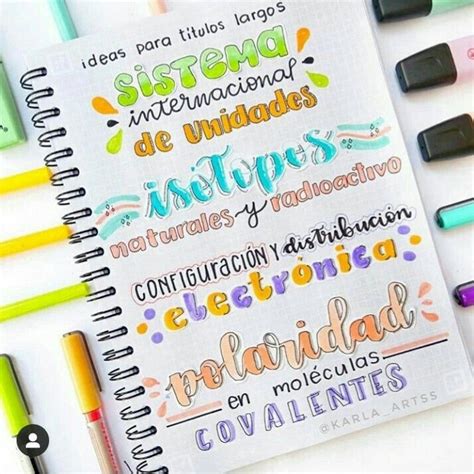 ideas para títulos largos
sistema
internacional
de unidades
isótopos
naturales y radioactivo
CONFIGURACIÓN Y distribución
electrónica
polaridad
en moléculas
COVALENTES
@KARLA_ARTSS